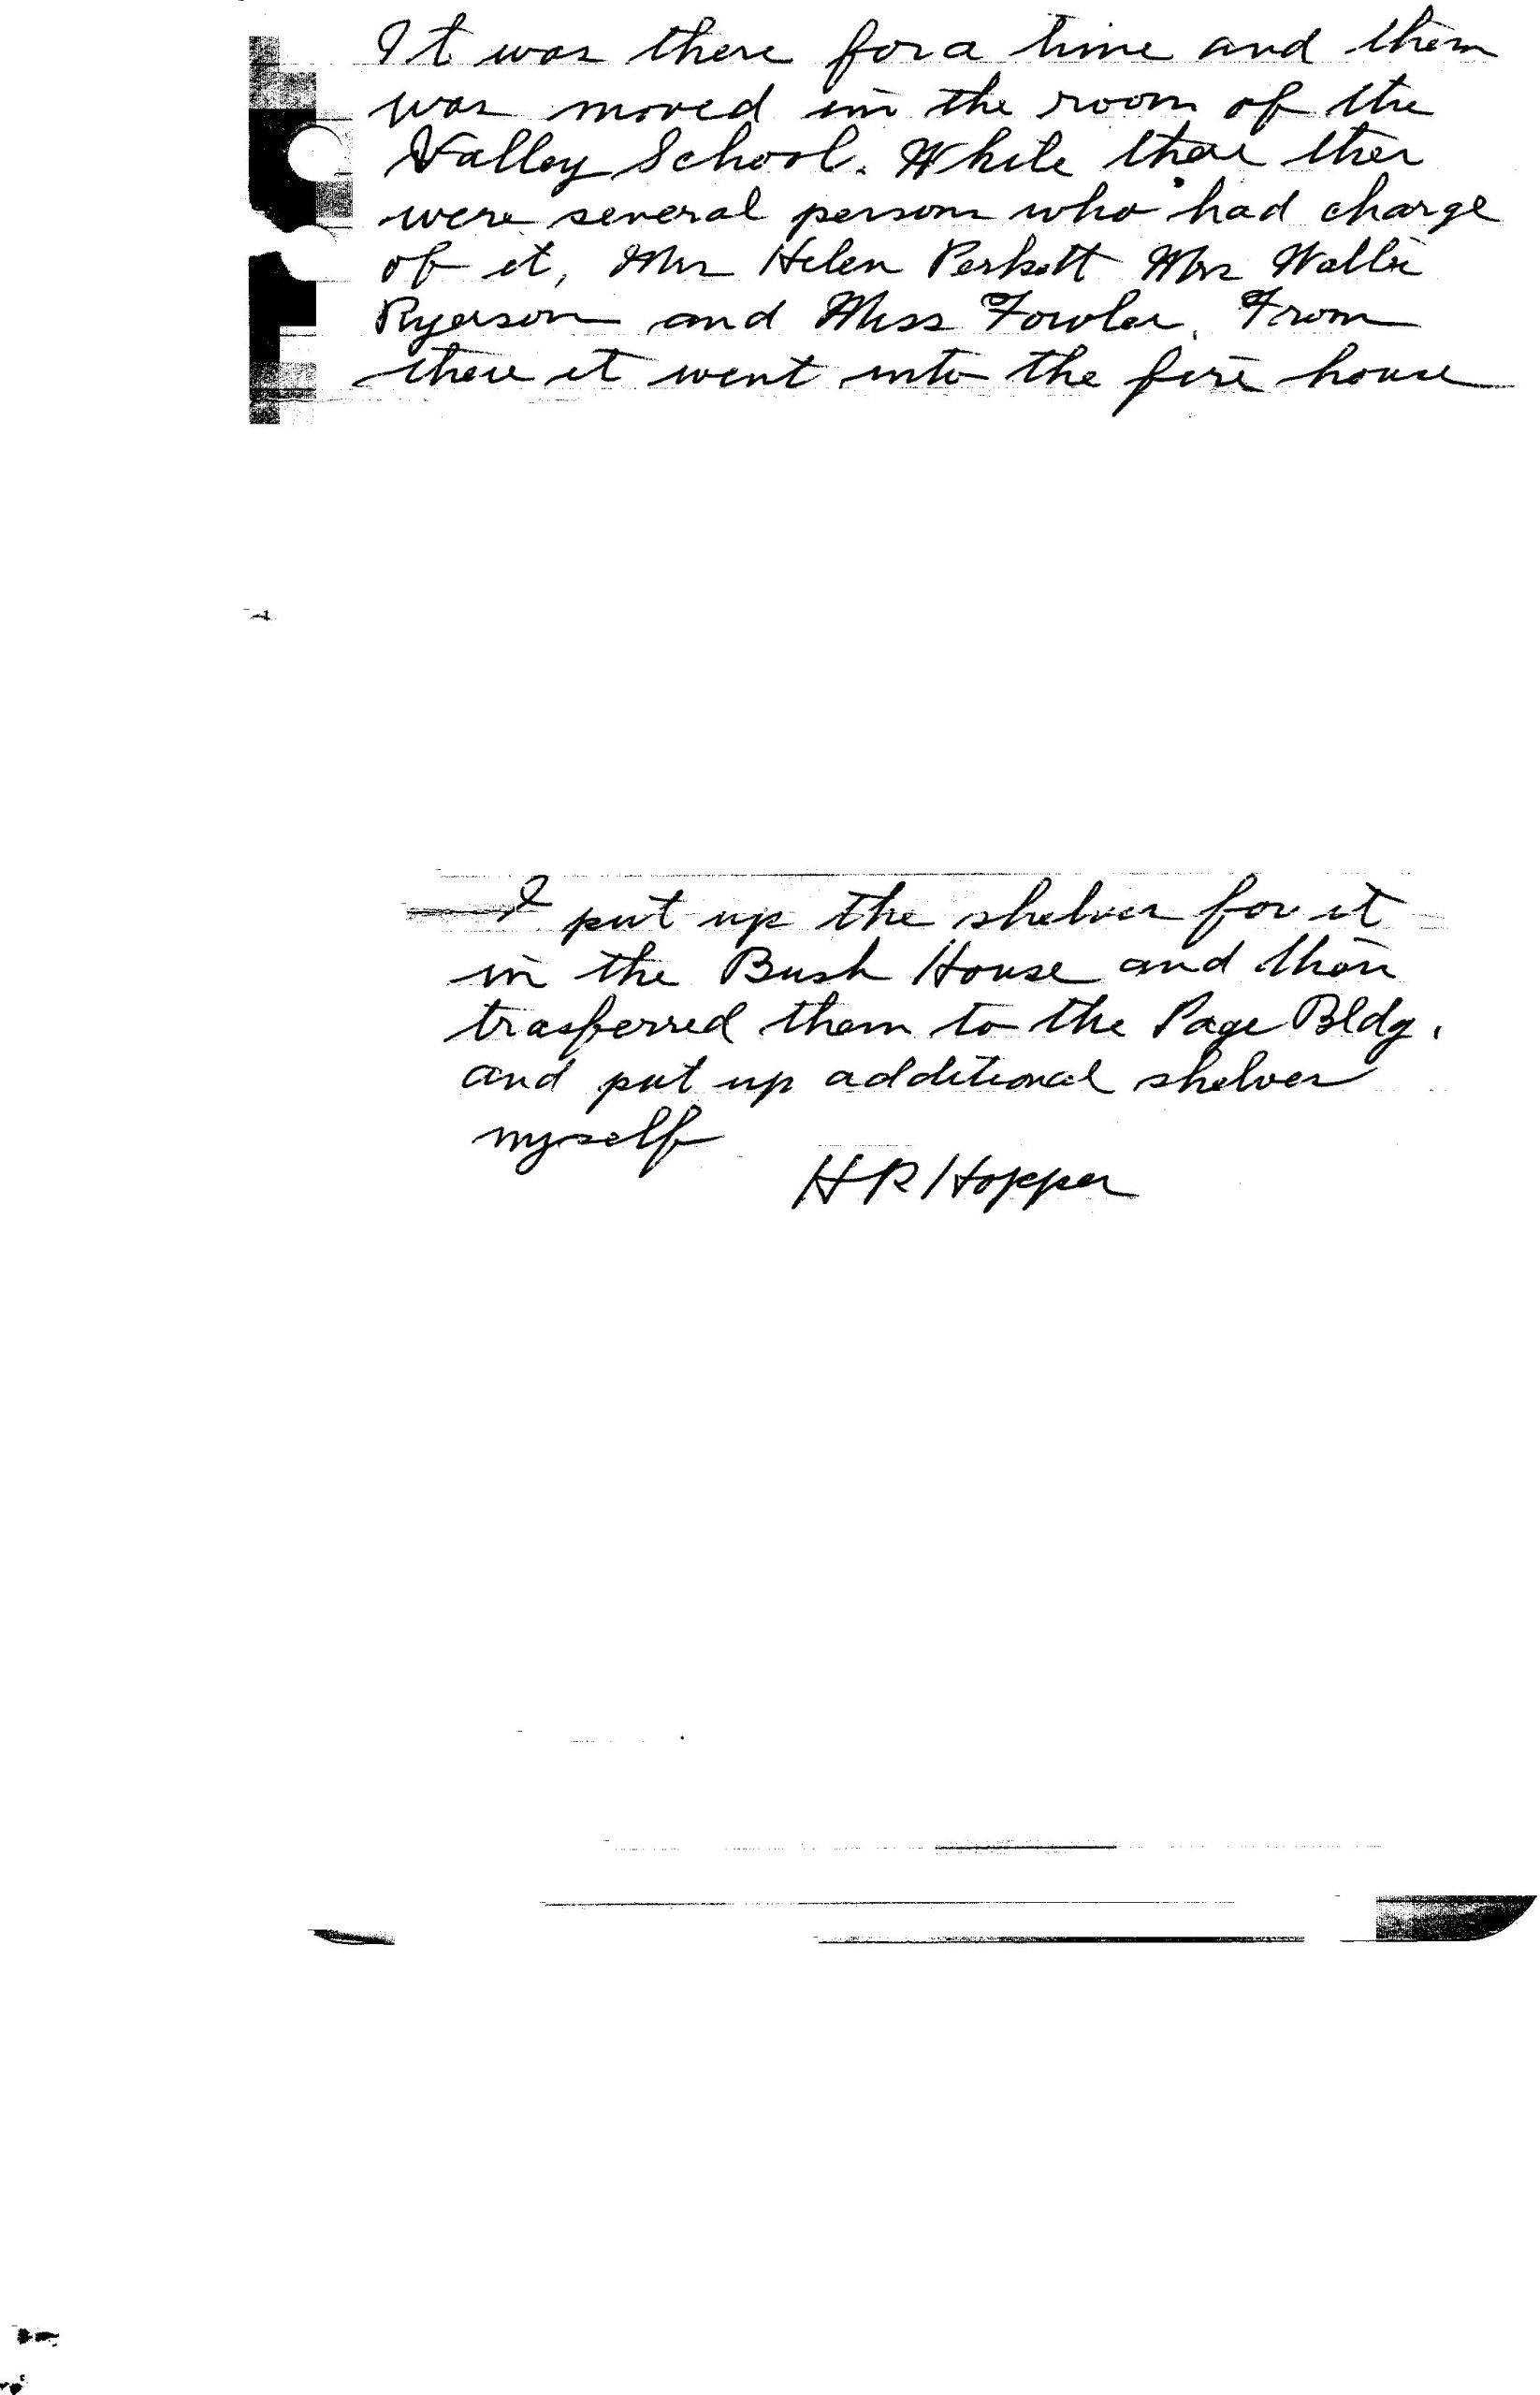 It was there for a time and then
was moved in the room of the
Valley School. While there ther
were several person who had charge
of it, Mrs Helen Mrs
Ryerson and Miss Fowler. From
there it went into the fire house
I put up the shelves for it
in the Bush House and then
trasferred them to the Page Bldg.
and put up additional shelves
myself
HR Hopper